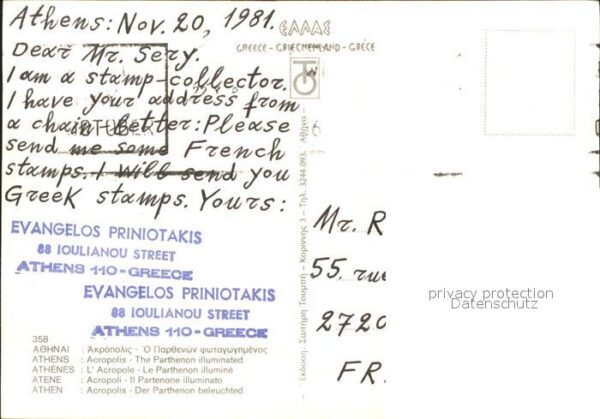 Athens: Nov. 20, 1981.
Dear Mr. Sery.
I am a stamp-collector.
I have your address from
a chain letter: Please
send me some French
stamps. I will send you
Greek stamps. Yours:
EVANGELOS PRINIOTAKIS
88 IOULIANOU STREET
ATHENS 110-GREECE
EVANGELOS PRINIOTAKIS
88 IOULIANOU STREET
ATHENS 110-GREECE
358
ΑΘΗΝΑΙ : Ἀκρόπολις - Ὁ Παρθενών φωταγωγημένος
ATHENS : Acropolis - The Parthenon illuminated
ATHÈNES : L' Acropole - Le Parthenon illuminé
ATENE : Acropoli - Il Partenone illuminato
ATHEN : Acropolis - Der Parthenon beleuchtet
ΕΛΛΑΣ
GREECE - GRIECHENLAND - GRÈCE
Ἔκδοση: Σωτήρη Τουμπή - Κορίννης 3 - Τηλ. 3244.093, Ἀθῆνα -
Mr. R
55. rue
2720
FR
privacy protection
Datenschutz